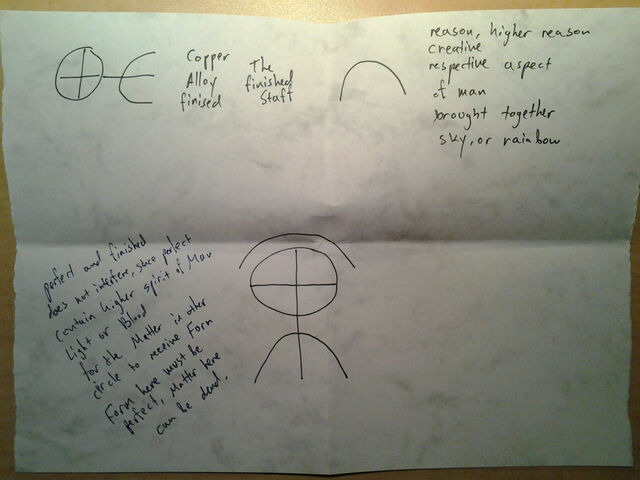 Copper
Alloy
finised
The
finished
Staff
reason, higher reason
creative
respective aspect
of man
brought together
sky, or rainbow
perfect and finished
does not interfere, since perfect
Contain higher spirit of Man
Light or Blood
for the Matter in other
circle to receive Form
Form here must be
perfect, Matter here
can be dead.